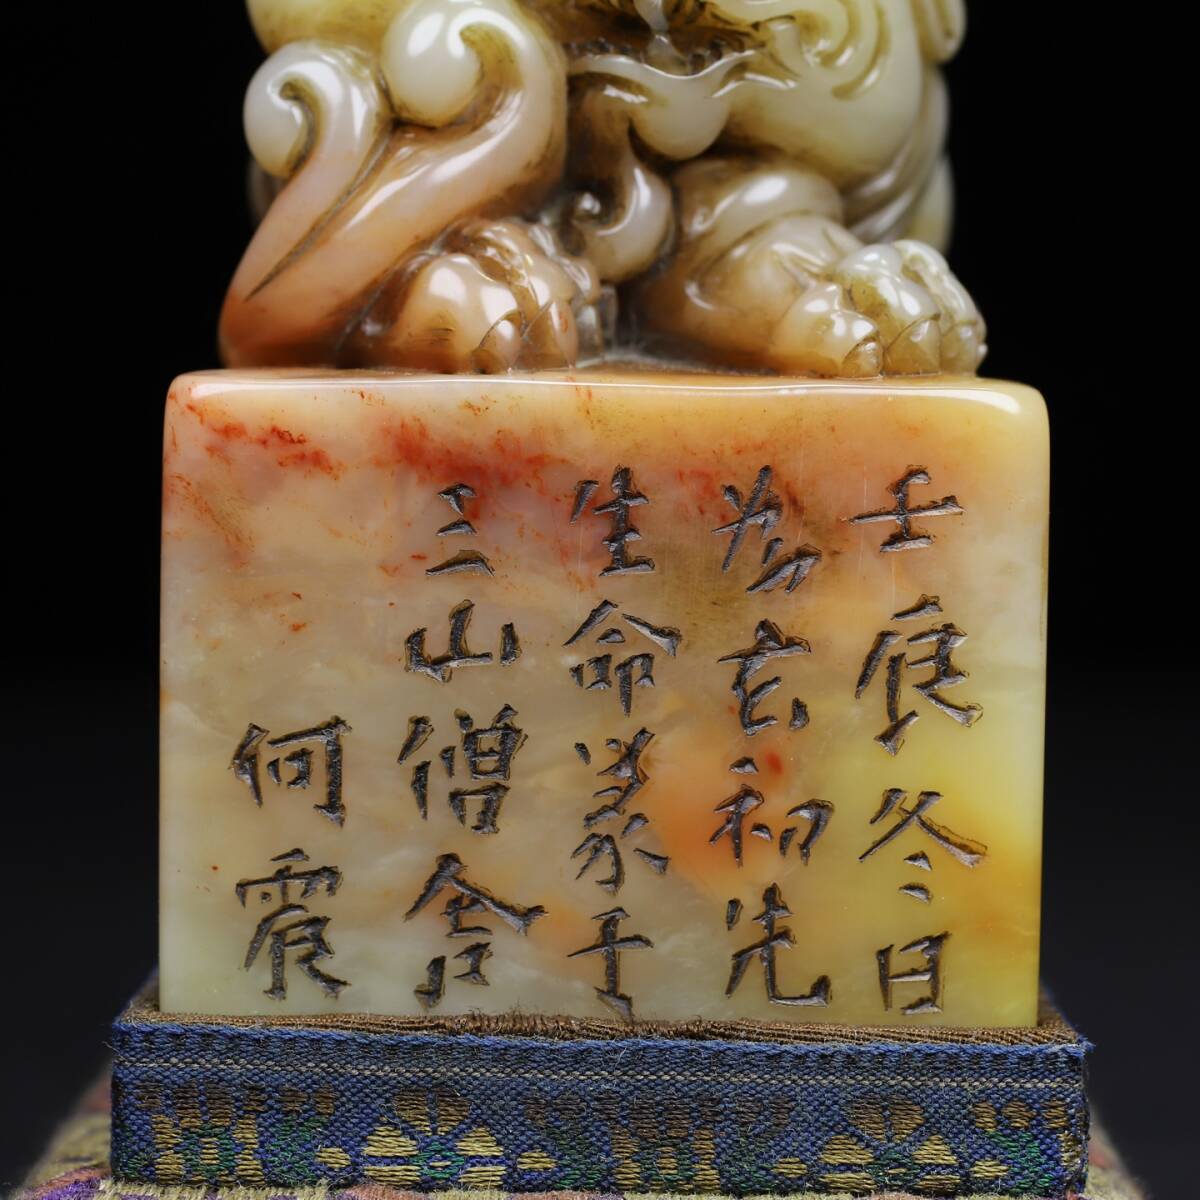 壬辰冬日
為玄初先
生命篆于
三山僧舍
何震